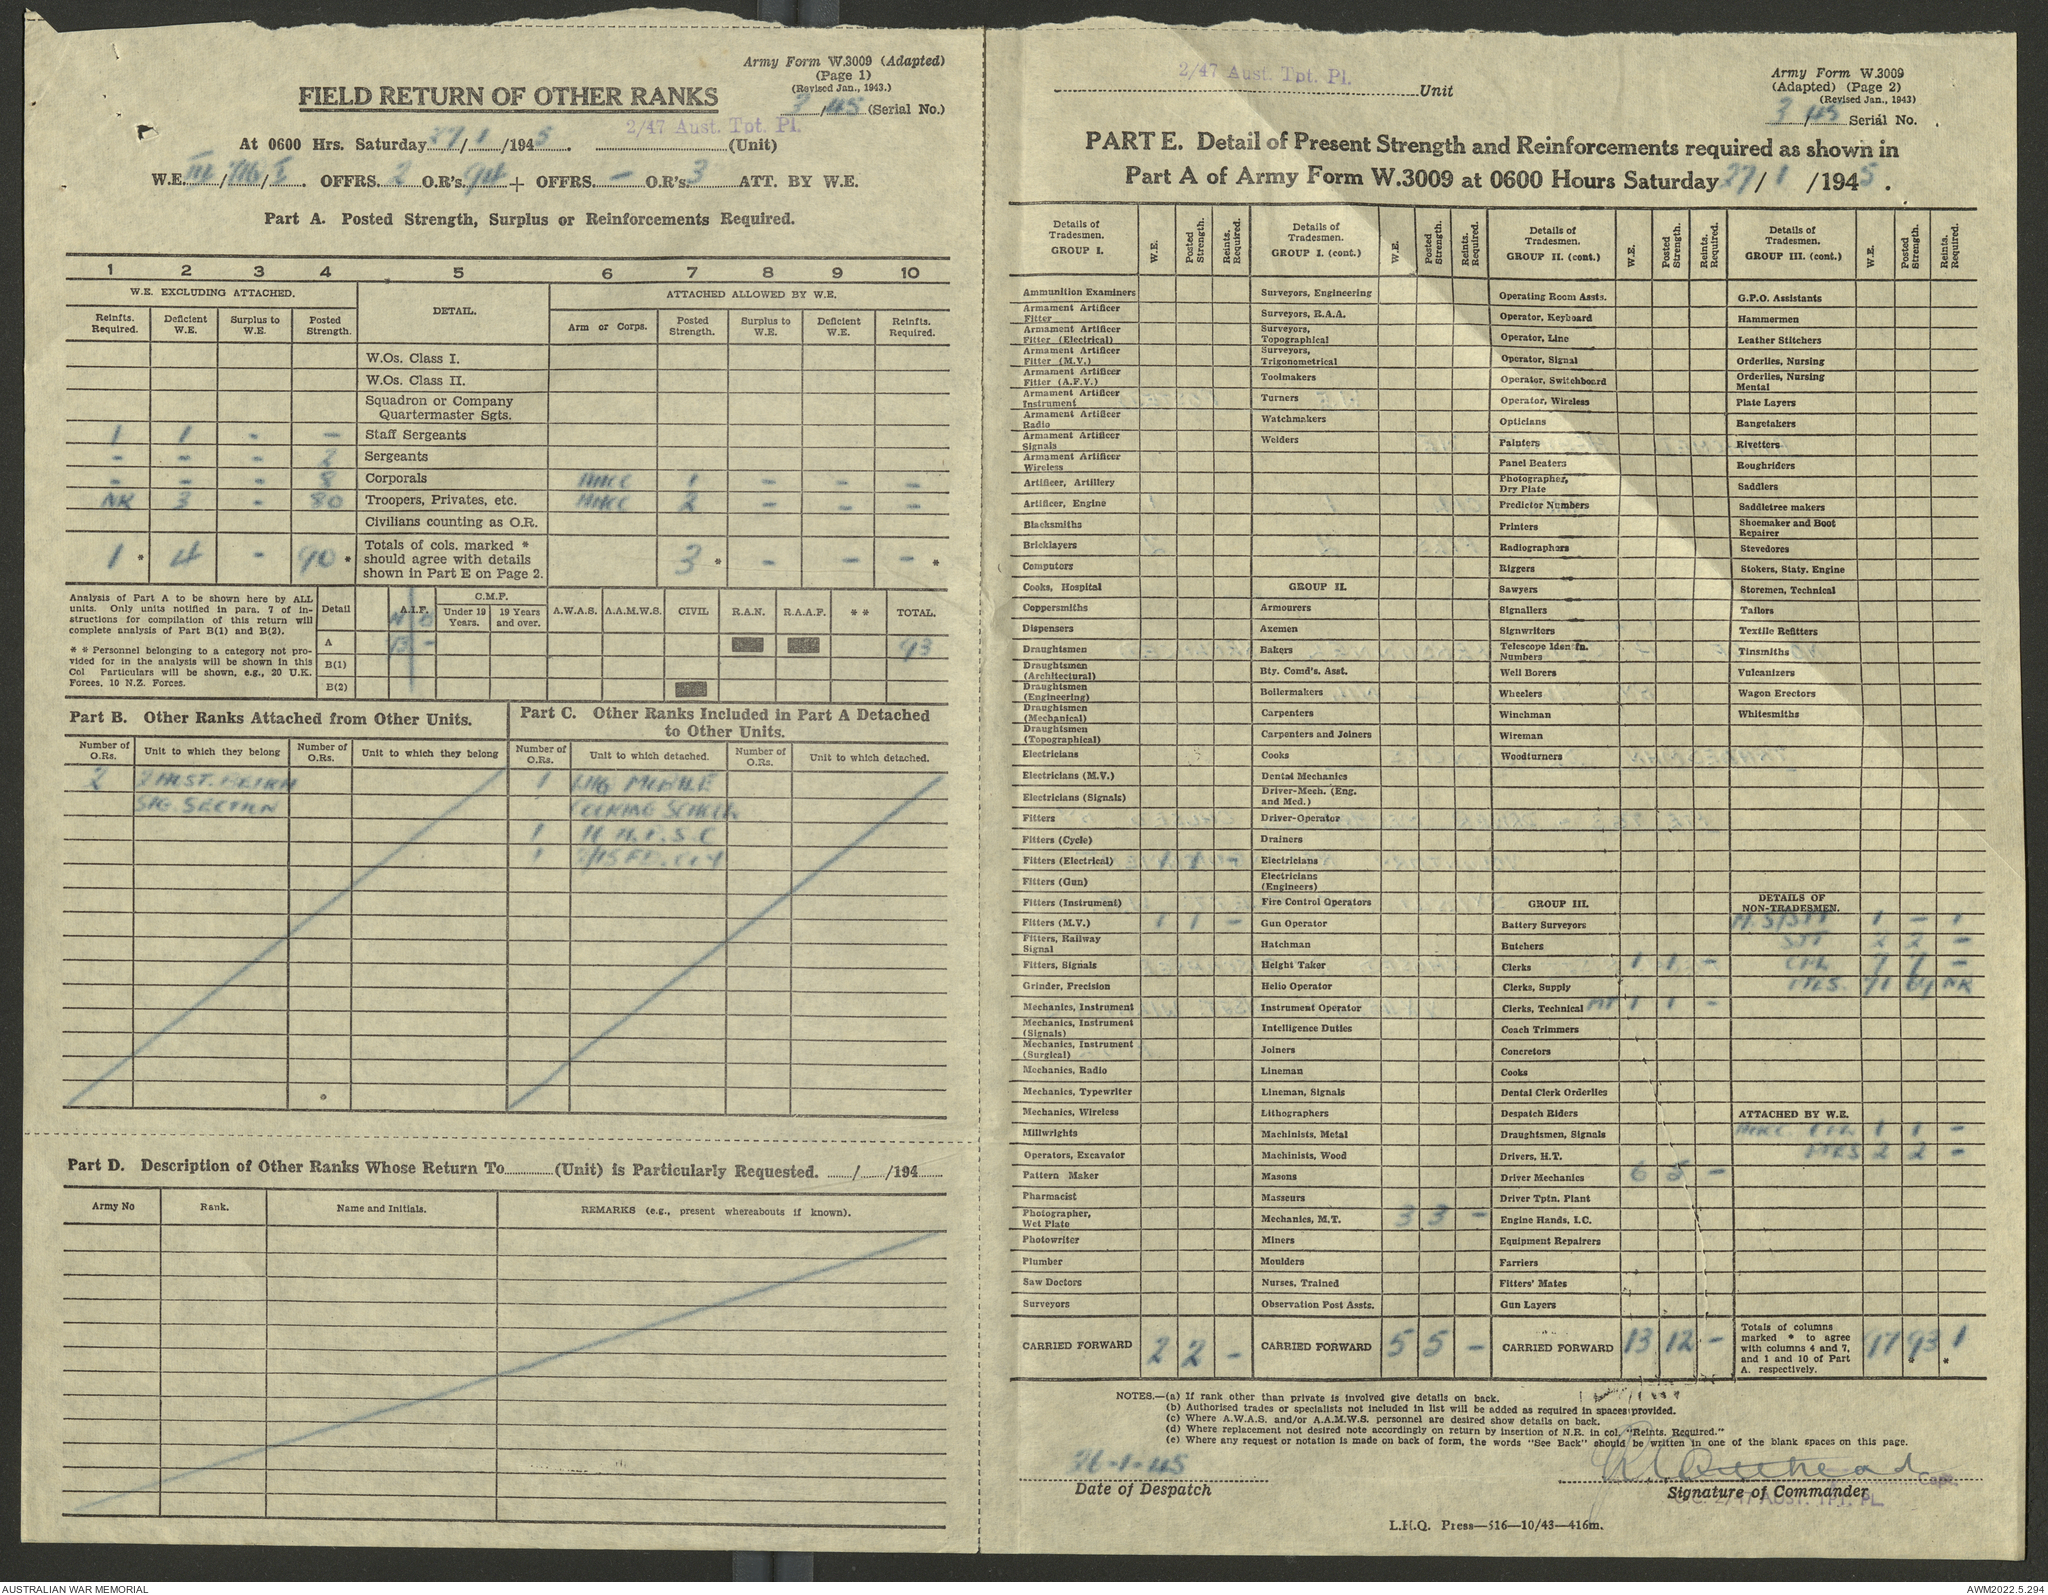 Army Form W.3009 (Adapted)
(Page 1)
(Revised Jan., 1943.)
FIELD RETURN OF OTHER RANKS
3/45 (Serial No.)
2/47 Aust. Tpt. Pl.
At 0600 Hrs. Saturday 27/1/1945. (Unit)
W.E. III/ /I. OFFRS. 2 O.R's 94 + OFFRS. — O.R's 3 ATT. BY W.E.
Part A. Posted Strength, Surplus or Reinforcements Required.
1 2 3 4 5 6 7 8 9 10
W.E. EXCLUDING ATTACHED. DETAIL. ATTACHED ALLOWED BY W.E.
Reinfts. Required. Deficient W.E. Surplus to W.E. Posted Strength. Arm or Corps. Posted Strength. Surplus to W.E. Deficient W.E. Reinfts. Required.
W.Os. Class I.
W.Os. Class II.
Squadron or Company
Quartermaster Sgts.
1 1 - - Staff Sergeants
- - - 2 Sergeants
- - - 8 Corporals AACC 1 - - -
NR 3 - 80 Troopers, Privates, etc. AACC 2 - - -
Civilians counting as O.R.
1 * 4 - 90 * Totals of cols. marked * should agree with details shown in Part E on Page 2. 3 * - - - *
Analysis of Part A to be shown here by ALL
units. Only units notified in para. 7 of in-
structions for compilation of this return will
complete analysis of Part B(1) and B(2).
* * Personnel belonging to a category not pro-
vided for in the analysis will be shown in this
Col Particulars will be shown, e.g., 20 U.K.
Forces, 10 N.Z. Forces.
Detail A.I.F. C.M.F. Under 19 Years. 19 Years and over. A.W.A.S. A.A.M.W.S. CIVIL R.A.N. R.A.A.F. * * TOTAL.
N O
A 93 - 93
B(1)
B(2)
Part B. Other Ranks Attached from Other Units.
Number of O.Rs. Unit to which they belong Number of O.Rs. Unit to which they belong
2 2 AUST.
SIG. SECTION
Part C. Other Ranks Included in Part A Detached
to Other Units.
Number of O.Rs. Unit to which detached. Number of O.Rs. Unit to which detached.
1 LHQ MOBILE
COOKING SCHOOL
1
1 2/15 FD. COY
Part D. Description of Other Ranks Whose Return To (Unit) is Particularly Requested. / /194
Army No Rank. Name and Initials. REMARKS (e.g., present whereabouts if known).
2/47 Aust. Tpt. Pl. Unit
Army Form W.3009
(Adapted) (Page 2)
(Revised Jan., 1943)
3/45 Serial No.
PART E. Detail of Present Strength and Reinforcements required as shown in
Part A of Army Form W.3009 at 0600 Hours Saturday 27/1/1945.
Details of Tradesmen. GROUP I. W.E. Posted Strength. Reints. Required.
Ammunition Examiners
Armament Artificer Fitter
Armament Artificer Fitter (Electrical)
Armament Artificer Fitter (M.V.)
Armament Artificer Fitter (A.F.V.)
Armament Artificer Instrument
Armament Artificer Radio
Armament Artificer Signals
Armament Artificer Wireless
Artificer, Artillery
Artificer, Engine
Blacksmiths
Bricklayers
Computors
Cooks, Hospital
Coppersmiths
Dispensers
Draughtsmen
Draughtsmen (Architectural)
Draughtsmen (Engineering)
Draughtsmen (Mechanical)
Draughtsmen (Topographical)
Electricians
Electricians (M.V.)
Electricians (Signals)
Fitters
Fitters (Cycle)
Fitters (Electrical) 1 1 -
Fitters (Gun)
Fitters (Instrument)
Fitters (M.V.) 1 1 -
Fitters, Railway Signal
Fitters, Signals
Grinder, Precision
Mechanics, Instrument
Mechanics, Instrument (Signals)
Mechanics, Instrument (Surgical)
Mechanics, Radio
Mechanics, Typewriter
Mechanics, Wireless
Millwrights
Operators, Excavator
Pattern Maker
Pharmacist
Photographer, Wet Plate
Photowriter
Plumber
Saw Doctors
Surveyors
CARRIED FORWARD 2 2 -
Details of Tradesmen. GROUP I. (cont.) W.E. Posted Strength. Reints. Required.
Surveyors, Engineering
Surveyors, R.A.A.
Surveyors, Topographical
Surveyors, Trigonometrical
Toolmakers
Turners
Watchmakers
Welders
GROUP II.
Armourers
Axemen
Bakers
Bty. Comd's. Asst.
Boilermakers
Carpenters
Carpenters and Joiners
Cooks
Dental Mechanics
Driver-Mech. (Eng. and Med.)
Driver-Operator
Drainers
Electricians
Electricians (Engineers)
Fire Control Operators
Gun Operator
Hatchman
Height Taker
Helio Operator
Instrument Operator
Intelligence Duties
Joiners
Lineman
Lineman, Signals
Lithographers
Machinists, Metal
Machinists, Wood
Masons
Masseurs
Mechanics, M.T. 3 3 -
Miners
Moulders
Nurses, Trained
Observation Post Assts.
CARRIED FORWARD 5 5 -
Details of Tradesmen. GROUP II. (cont.) W.E. Posted Strength. Reints. Required.
Operating Room Assts.
Operator, Keyboard
Operator, Line
Operator, Signal
Operator, Switchboard
Operator, Wireless
Opticians
Painters
Panel Beaters
Photographer, Dry Plate
Predictor Numbers
Printers
Radiographers
Riggers
Sawyers
Signallers
Signwriters
Telescope Iden'fn. Numbers
Well Borers
Wheelers
Winchman
Wireman
Woodturners
GROUP III.
Battery Surveyors
Butchers
Clerks 1 1 -
Clerks, Supply
Clerks, Technical MT 1 1 -
Coach Trimmers
Concretors
Cooks
Dental Clerk Orderlies
Despatch Riders
Draughtsmen, Signals
Drivers, H.T.
Driver Mechanics 6 5 -
Driver Tptn. Plant
Engine Hands, I.C.
Equipment Repairers
Farriers
Fitters' Mates
Gun Layers
CARRIED FORWARD 13 12 -
Details of Tradesmen. GROUP III. (cont.) W.E. Posted Strength. Reints. Required.
G.P.O. Assistants
Hammermen
Leather Stitchers
Orderlies, Nursing
Orderlies, Nursing Mental
Plate Layers
Rangetakers
Rivetters
Roughriders
Saddlers
Saddletree makers
Shoemaker and Boot Repairer
Stevedores
Stokers, Staty. Engine
Storemen, Technical
Tailors
Textile Refitters
Tinsmiths
Vulcanizers
Wagon Erectors
Whitesmiths
DETAILS OF NON-TRADESMEN.
1 - 1
SJT 2 2 -
CPL 7 7 -
PTES. 71 64 NR
ATTACHED BY W.E.
AACC CPL 1 1 -
PTES 2 2 -
Totals of columns marked * to agree with columns 4 and 7, and 1 and 10 of Part A. respectively. 97 93 * 1 *
NOTES.—(a) If rank other than private is involved give details on back.
(b) Authorised trades or specialists not included in list will be added as required in spaces provided.
(c) Where A.W.A.S. and/or A.A.M.W.S. personnel are desired show details on back.
(d) Where replacement not desired note accordingly on return by insertion of N.R. in col. "Reints. Required."
(e) Where any request or notation is made on back of form, the words "See Back" should be written in one of the blank spaces on this page.
26-1-45
Date of Despatch
Capt.
Signature of Commander
O.C. 2/47 AUST. TPT. PL.
L.H.Q. Press—516—10/43—416m.
AUSTRALIAN WAR MEMORIAL
AWM2022.5.294